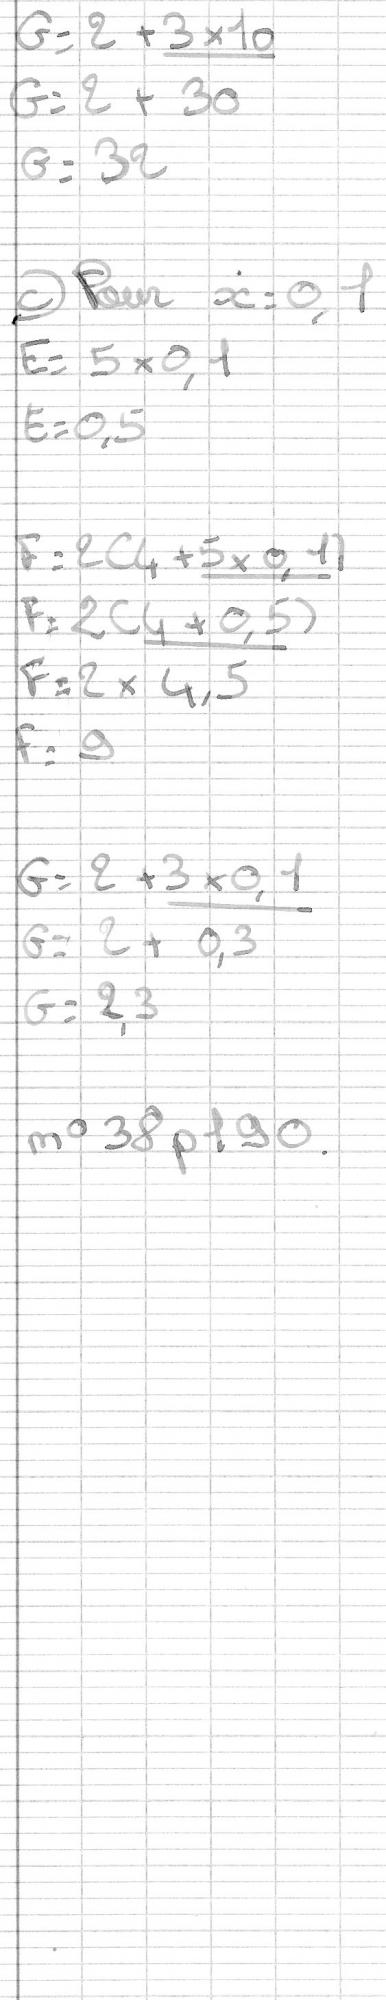 G = 2 + 3 × 10
G = 2 + 30
G = 32
c) Pour x = 0,1
E = 5 × 0,1
E = 0,5
F = 2(4 + 5 × 0,1)
F = 2(4 + 0,5)
F = 2 × 4,5
F = 9
G = 2 + 3 × 0,1
G = 2 + 0,3
G = 2,3
n° 38 p 190.